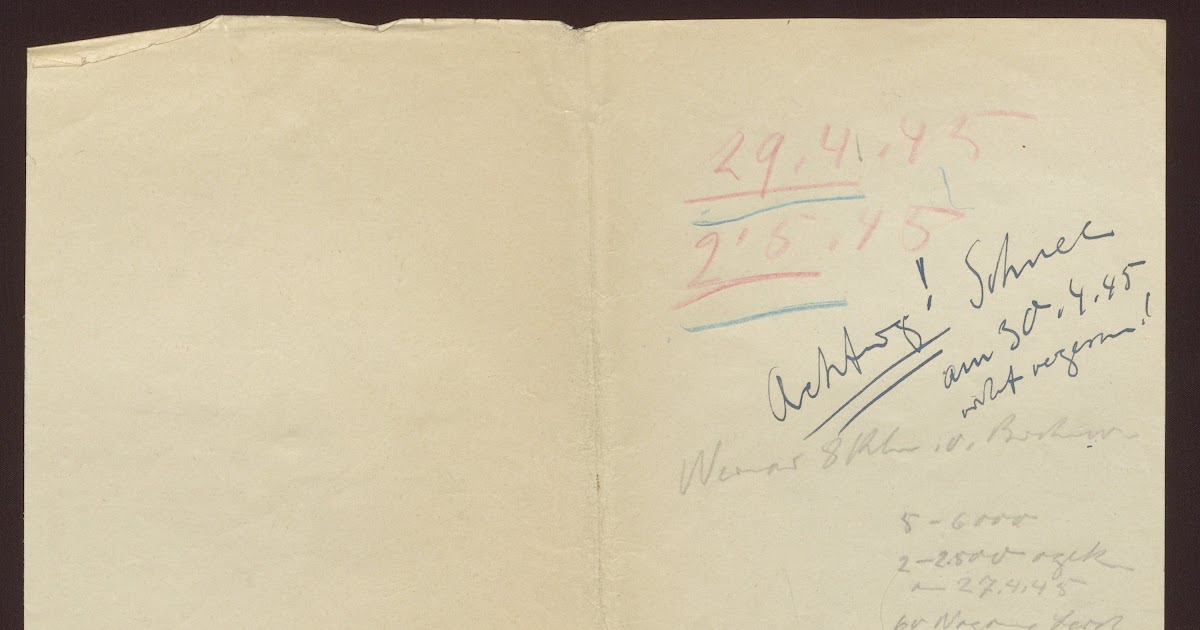 29.4.45
2.5.45
Achtung! Schnee
am 30.4.45
nicht vergessen!
Werner 8 Klm. v.
5 - 6000
2 - 2500
27.4.45
60